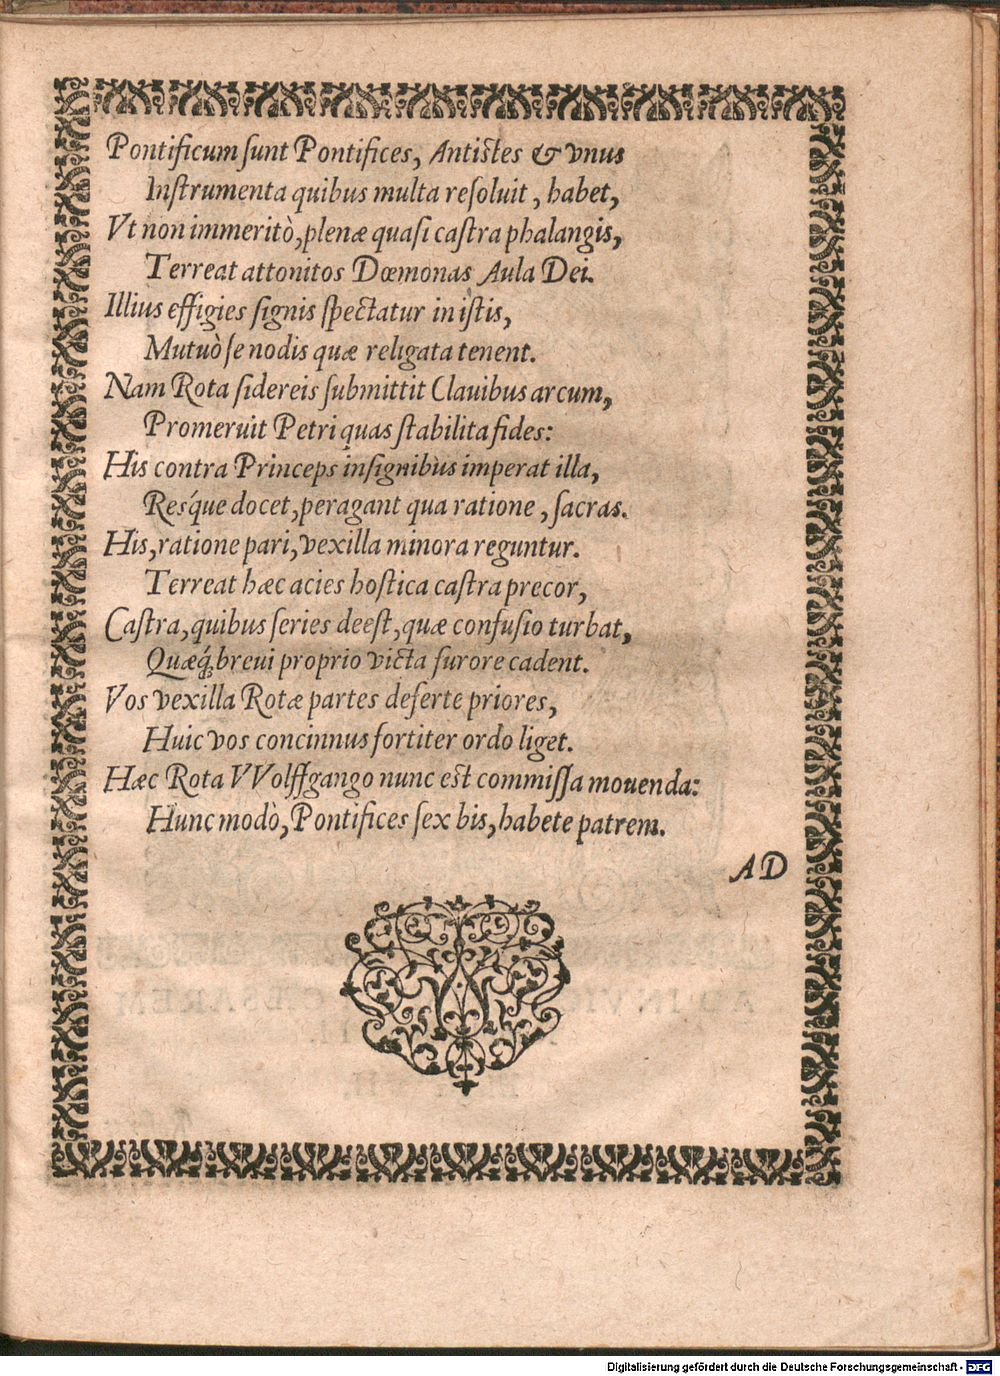 Pontificum ſunt Pontifices, Antiſtes & vnus
Inſtrumenta quibus multa reſoluit, habet,
Vt non immeritò, plenæ quaſi caſtra phalangis,
Terreat attonitos Dœmonas Aula Dei.
Illius effigies ſignis ſpectatur in iſtis,
Mutuò ſe nodis quæ religata tenent.
Nam Rota ſidereis ſubmittit Clauibus arcum,
Promeruit Petri quas ſtabilita fides:
His contra Princeps inſignibùs imperat illa,
Reſq́ue docet, peragant qua ratione, ſacras.
His, ratione pari, vexilla minora reguntur.
Terreat hæc acies hoſtica caſtra precor,
Caſtra, quibus ſeries deeſt, quæ confuſio turbat,
Quæq́; breui proprio victa furore cadent.
Vos vexilla Rotæ partes deferte priores,
Huic vos concinnus fortiter ordo liget.
Hæc Rota VVolffgango nunc eſt commiſſa mouenda:
Hunc modò, Pontifices ſex bis, habete patrem.
AD
Digitalisierung gefördert durch die Deutsche Forschungsgemeinschaft - DFG